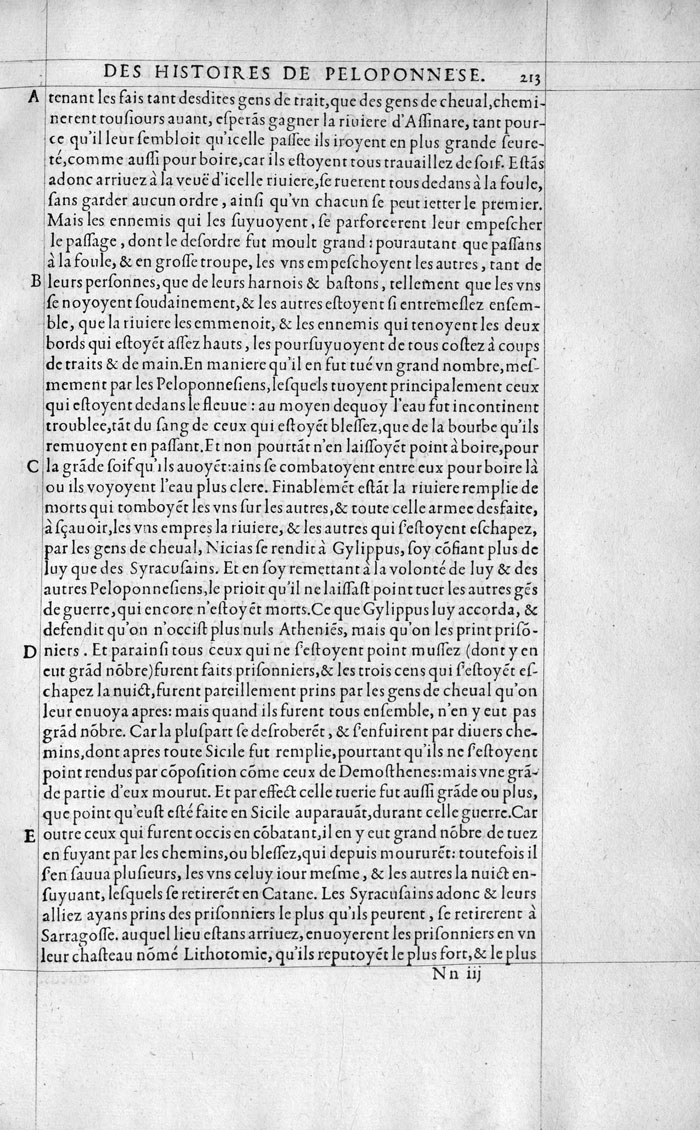 DES HISTOIRES DE PELOPONNESE. 213
A tenant les fais tant desdites gens de trait,que des gens de cheual,chemi-
nerent tousiours auant, esperãs gagner la riuiere d'Assinare, tant pour-
ce qu'il leur sembloit qu'icelle passee ils iroyent en plus grande seure-
té,comme aussi pour boire,car ils estoyent tous trauaillez de soif. Estãs
adonc arriuez à la veuë d'icelle riuiere,se ruerent tous dedans à la foule,
sans garder aucun ordre, ainsi qu'vn chacun se peut ietter le premier.
Mais les ennemis qui les suyuoyent, se parforcerent leur empescher
le passage, dont le desordre fut moult grand: pourautant que passans
à la foule, & en grosse troupe, les vns empeschoyent les autres, tant de
B leurs personnes,que de leurs harnois & bastons, tellement que les vns
se noyoyent soudainement,& les autres estoyent si entremeslez ensem-
ble, que la riuiere les emmenoit, & les ennemis qui tenoyent les deux
bords qui estoyẽt assez hauts, les poursuyuoyent de tous costez à coups
de traits & de main.En maniere qu'il en fut tué vn grand nombre,mes-
mement par les Peloponnesiens,lesquels tuoyent principalement ceux
qui estoyent dedans le fleuue: au moyen dequoy l'eau fut incontinent
troublee,tãt du sang de ceux qui estoyẽt blessez,que de la bourbe qu'ils
remuoyent en passant.Et non pourtãt n'en laissoyẽt point à boire,pour
C la grãde soif qu'ils auoyẽt:ains se combatoyent entre eux pour boire là
ou ils voyoyent l'eau plus clere. Finablemẽt estãt la riuiere remplie de
morts qui tomboyẽt les vns sur les autres,& toute celle armee desfaite,
à sçauoir,les vns empres la riuiere, & les autres qui s'estoyent eschapez,
par les gens de cheual, Nicias se rendit à Gylippus, soy cõfiant plus de
luy que des Syracusains. Et en soy remettant à la volonté de luy & des
autres Peloponnesiens,le prioit qu'il ne laissast point tuer les autres gẽs
de guerre,qui encore n'estoyẽt morts.Ce que Gylippus luy accorda, &
defendit qu'on n'occist plus nuls Atheniẽs, mais qu'on les print prisõ-
D niers. Et parainsi tous ceux qui ne s'estoyent point mussez (dont y en
eut grãd nõbre)furent faits prisonniers,& les trois cens qui s'estoyẽt es-
chapez la nuict,furent pareillement prins par les gens de cheual qu'on
leur enuoya apres: mais quand ils furent tous ensemble, n'en y eut pas
grãd nõbre. Car la pluspart se desroberẽt, & s'enfuirent par diuers che-
mins,dont apres toute Sicile fut remplie,pourtant qu'ils ne s'estoyent
point rendus par cõposition cõme ceux de Demosthenes:mais vne grã-
de partie d'eux mourut. Et par effect celle tuerie fut aussi grãde ou plus,
que point qu'eust esté faite en Sicile auparauãt,durant celle guerre.Car
E outre ceux qui furent occis en cõbatant,il en y eut grand nõbre de tuez
en fuyant par les chemins,ou blessez,qui depuis moururẽt: toutefois il
s'en sauua plusieurs, les vns celuy iour mesme, & les autres la nuict en-
suyuant, lesquels se retirerẽt en Catane. Les Syracusains adonc & leurs
alliez ayans prins des prisonniers le plus qu'ils peurent, se retirerent à
Sarragosse. auquel lieu estans arriuez, enuoyerent les prisonniers en vn
leur chasteau nõmé Lithotomie, qu'ils reputoyẽt le plus fort,& le plus
Nn iij